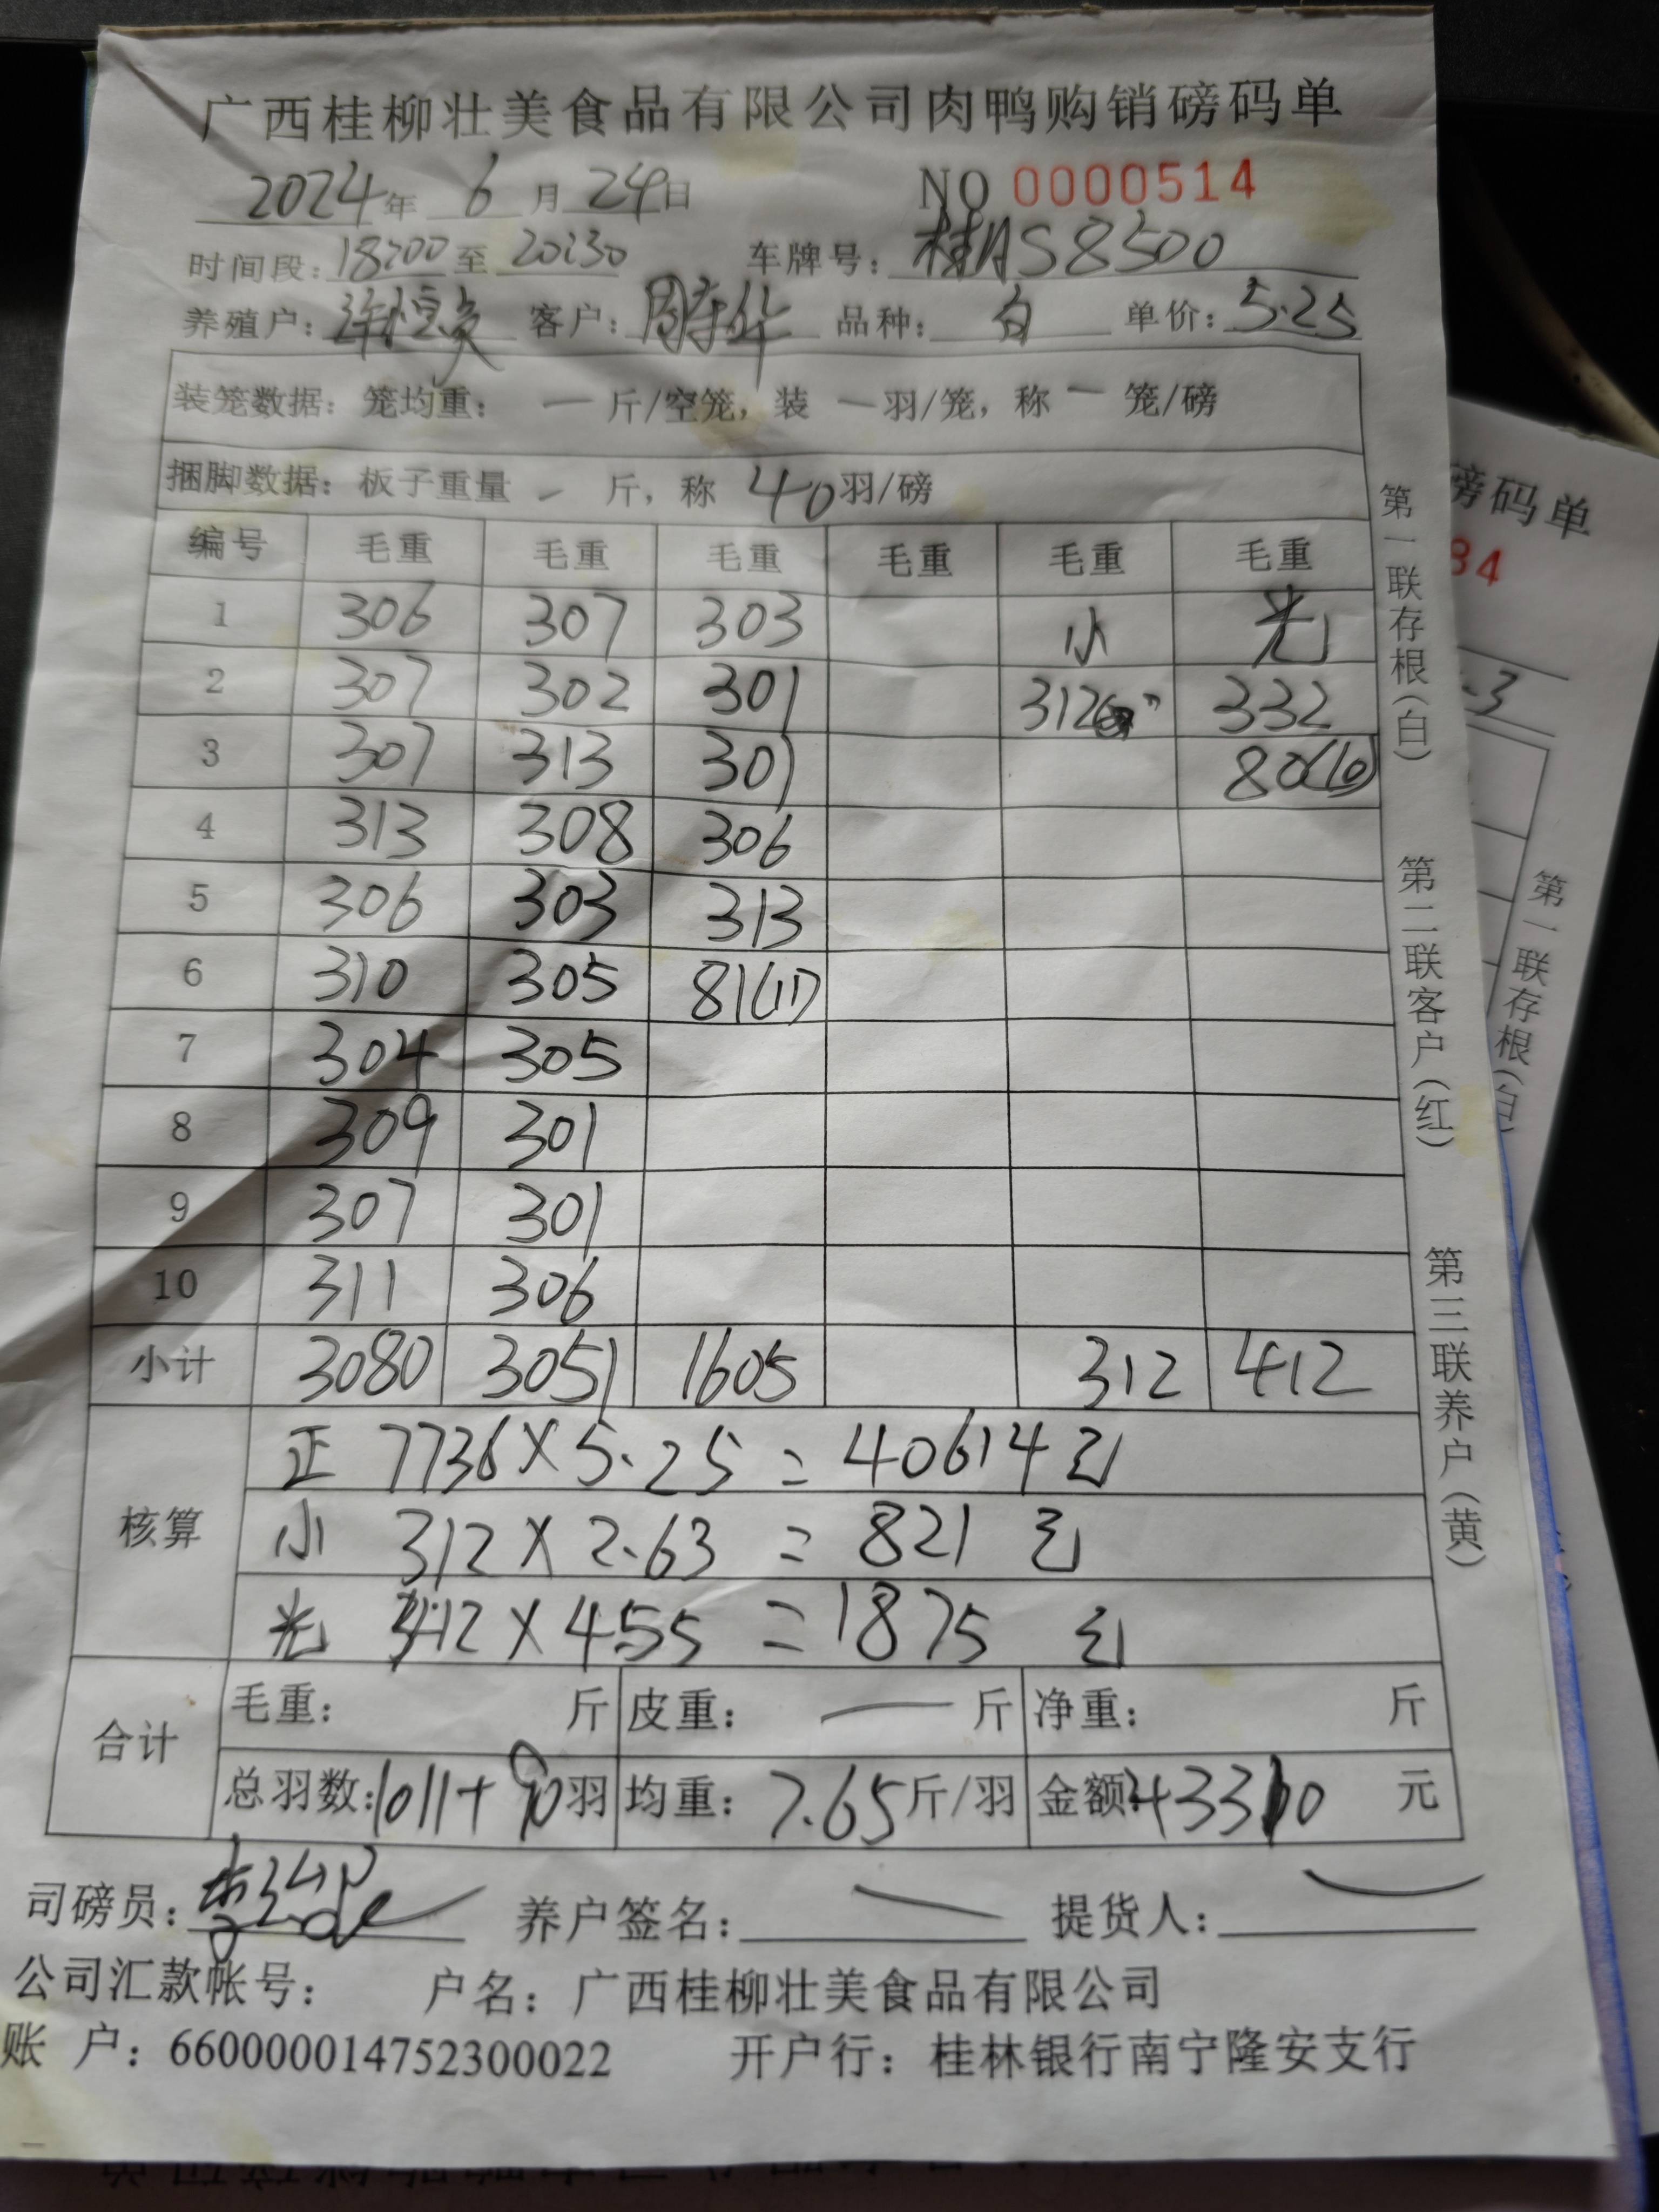 广西桂柳壮美食品有限公司肉鸭购销磅码单
2024年 6月 24日 NO 0000514
时间段: 18:00 至 20:30 车牌号: 桂AS8500
养殖户: 客户: 周 华 品种: 白 单价: 5.25
装笼数据: 笼均重: — 斤/空笼, 装 — 羽/笼, 称 — 笼/磅
捆脚数据: 板子重量 — 斤, 称 40 羽/磅
编号 毛重 毛重 毛重 毛重 毛重 毛重
1 306 307 303 小 光
2 307 302 301 312 332
3 307 313 301 80(10)
4 313 308 306
5 306 303 313
6 310 305 81(11)
7 304 305
8 309 301
9 307 301
10 311 306
小计 3080 3051 1605 312 412
核算
正 7736×5.25=40614元
小 312×2.63=821元
光 412×4.55=1875元
合计
毛重: 斤 皮重: — 斤 净重: 斤
总羽数: 1011+90羽 均重: 7.65斤/羽 金额: 43310 元
司磅员: 养户签名: 提货人:
公司汇款帐号: 户名: 广西桂柳壮美食品有限公司
账 户: 660000014752300022 开户行: 桂林银行南宁隆安支行
第一联存根(白) 第二联客户(红) 第三联养户(黄)
磅码单
34
.3
第一联存根(白)